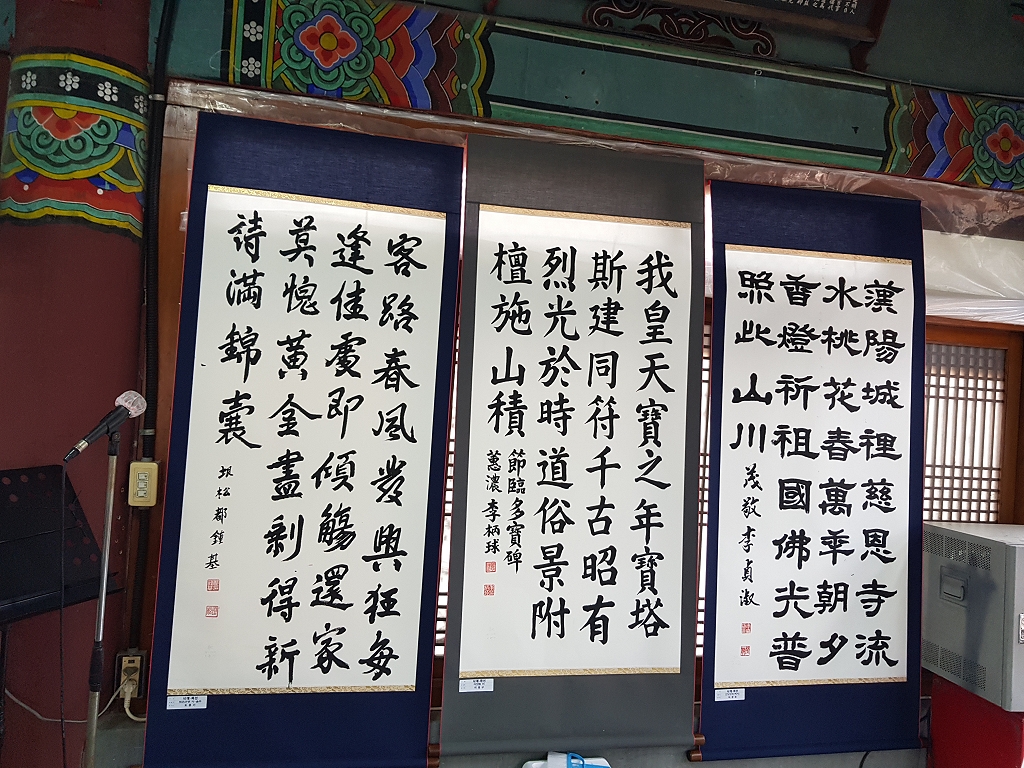 漢陽城裡慈恩寺流
水桃花春萬年朝夕
香燈祈祖國佛光普
照此山川
茂敬李貞淑
我皇天寶之年寶塔
斯建同符千古昭有
烈光於時道俗景附
檀施山積
節臨多寶碑
蕙濃李柄球
客路春風發興狂每
逢佳處即傾觴還家
莫愧黃金盡剩得新
詩滿錦囊
松都鍾基